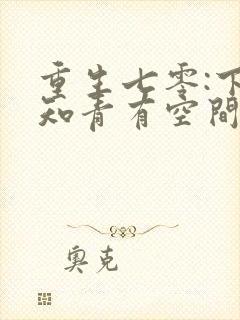 重生七零:下
知青有空間
奧克